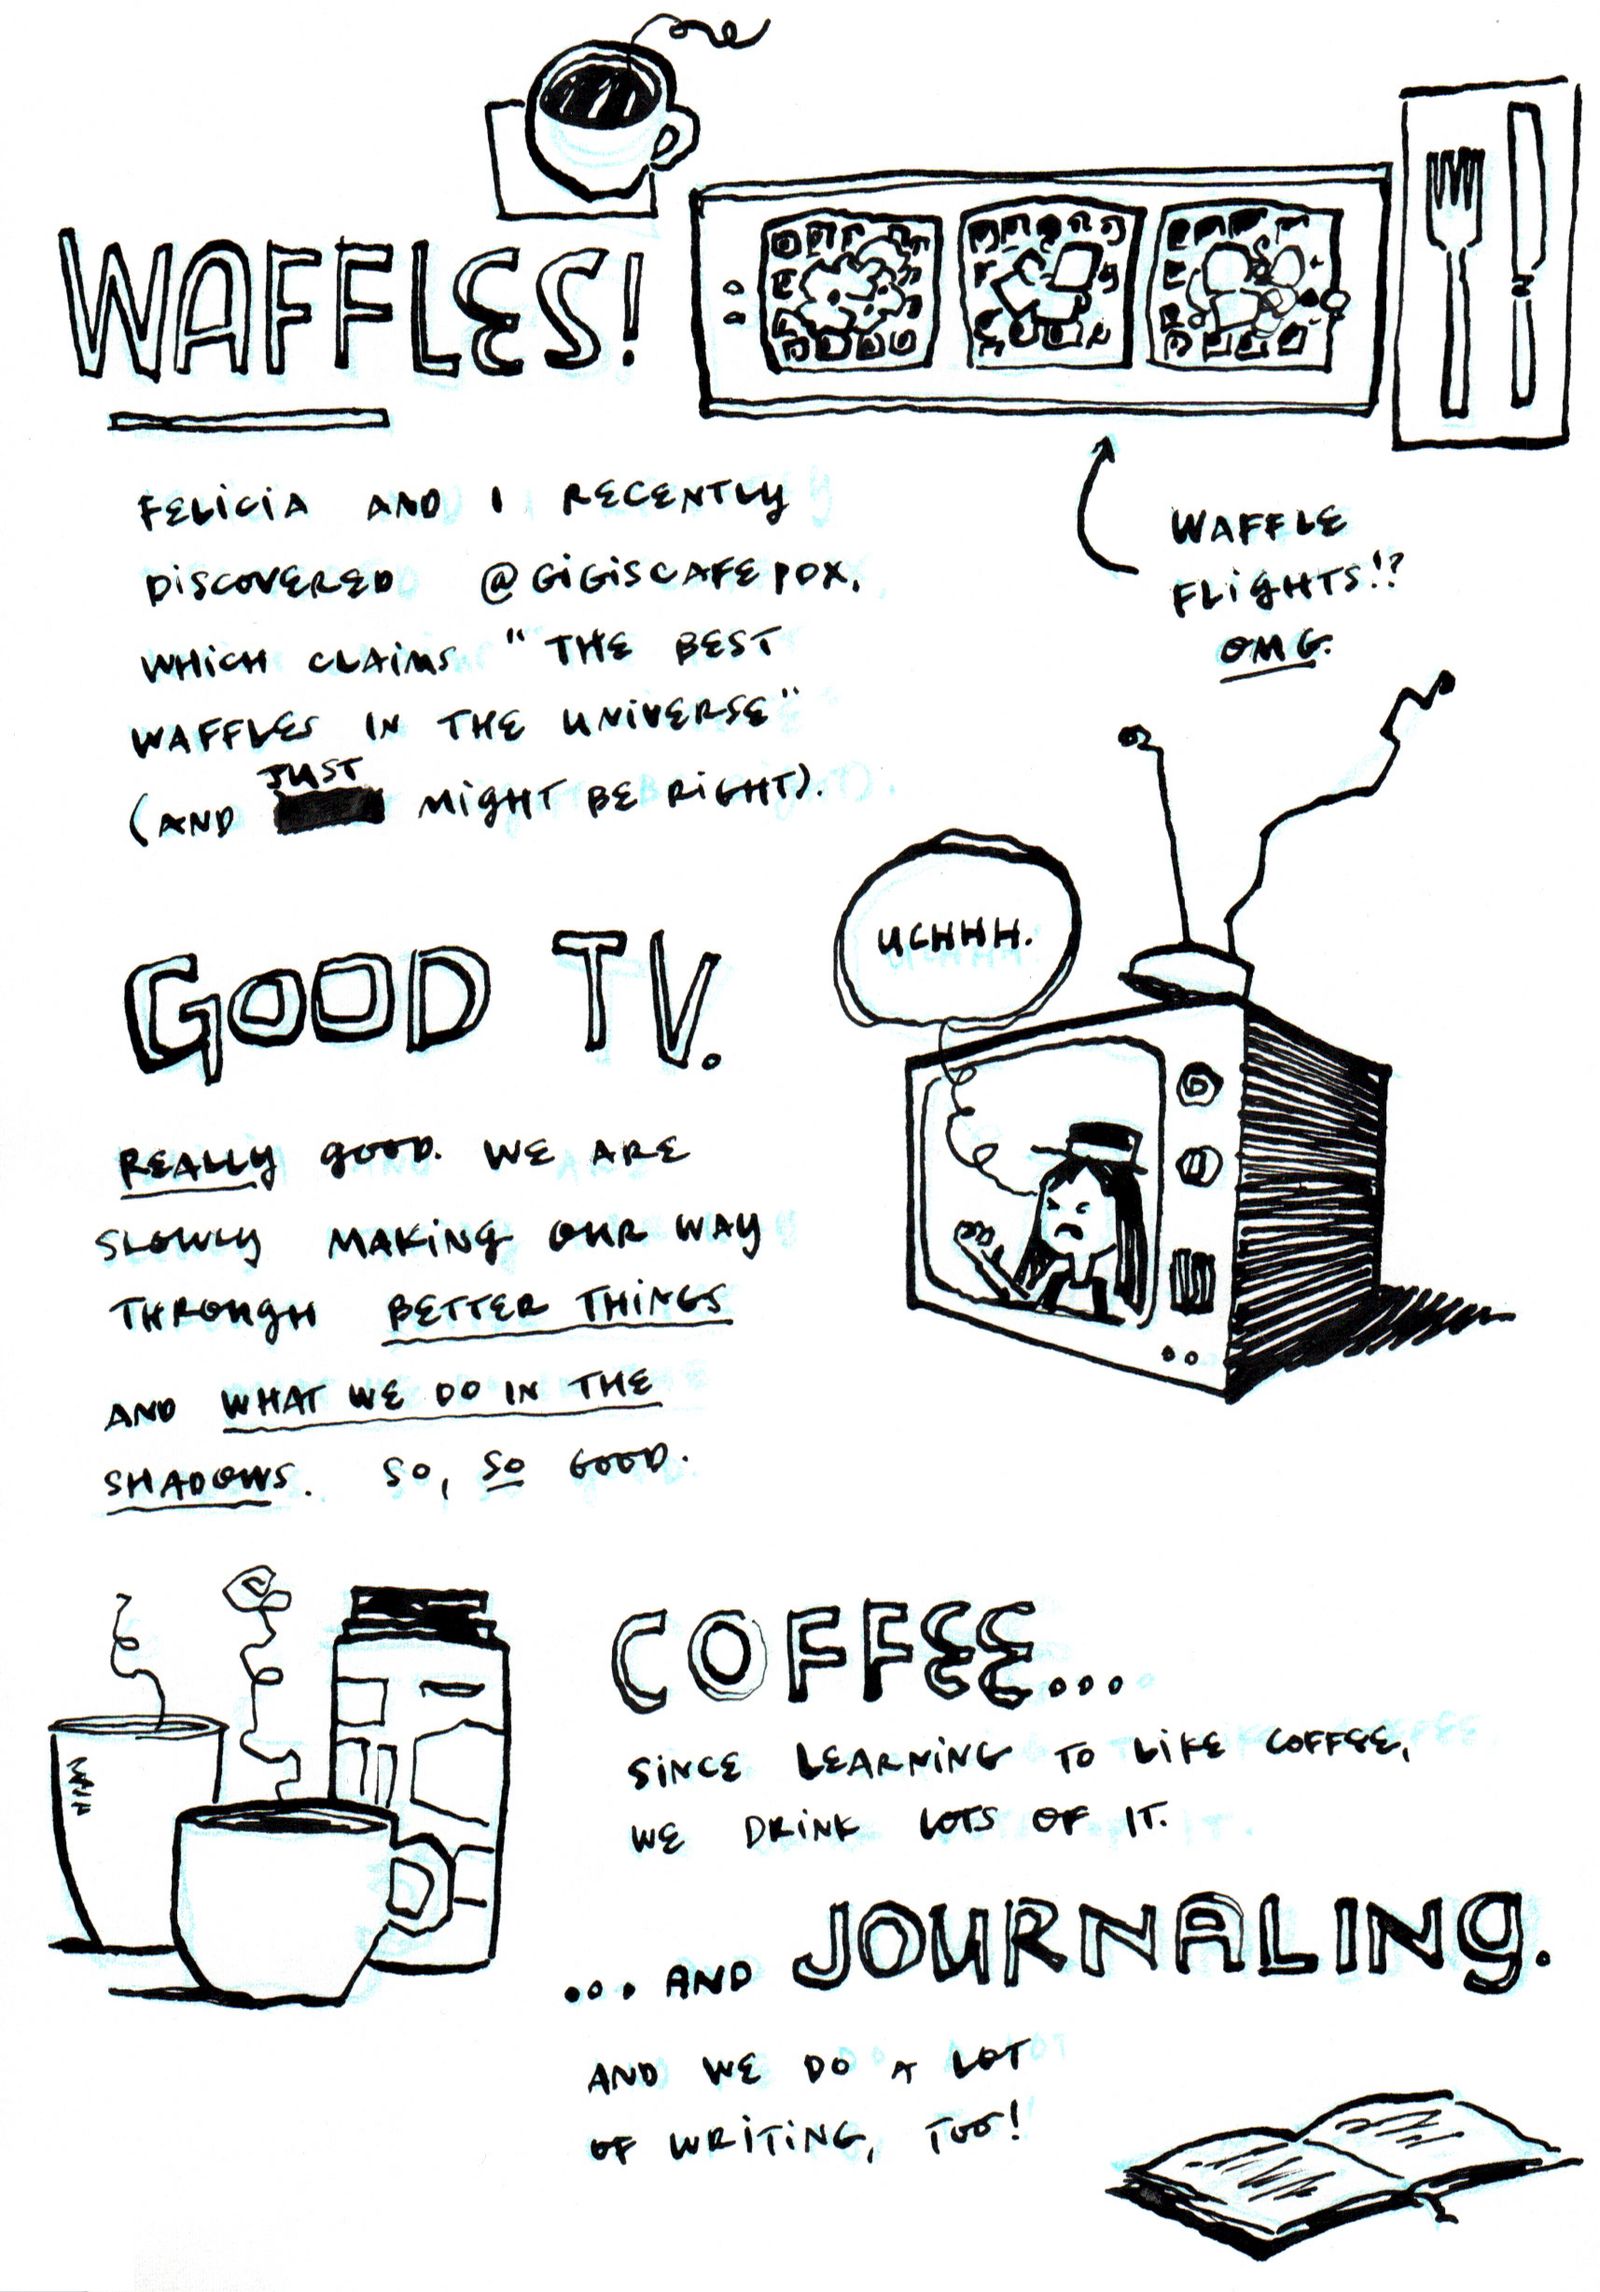 WAFFLES!
FELICIA AND I RECENTLY
DISCOVERED @GIGISCAFEPDX,
WHICH CLAIMS "THE BEST
WAFFLES IN THE UNIVERSE"
(AND JUST MIGHT BE RIGHT).
WAFFLE
FLIGHTS!?
OMG.
GOOD TV.
UGHHH.
REALLY GOOD. WE ARE
SLOWLY MAKING OUR WAY
THROUGH BETTER THINGS
AND WHAT WE DO IN THE
SHADOWS. SO, SO GOOD.
COFFEE...
SINCE LEARNING TO LIKE COFFEE,
WE DRINK LOTS OF IT.
... AND JOURNALING.
AND WE DO A LOT
OF WRITING, TOO!